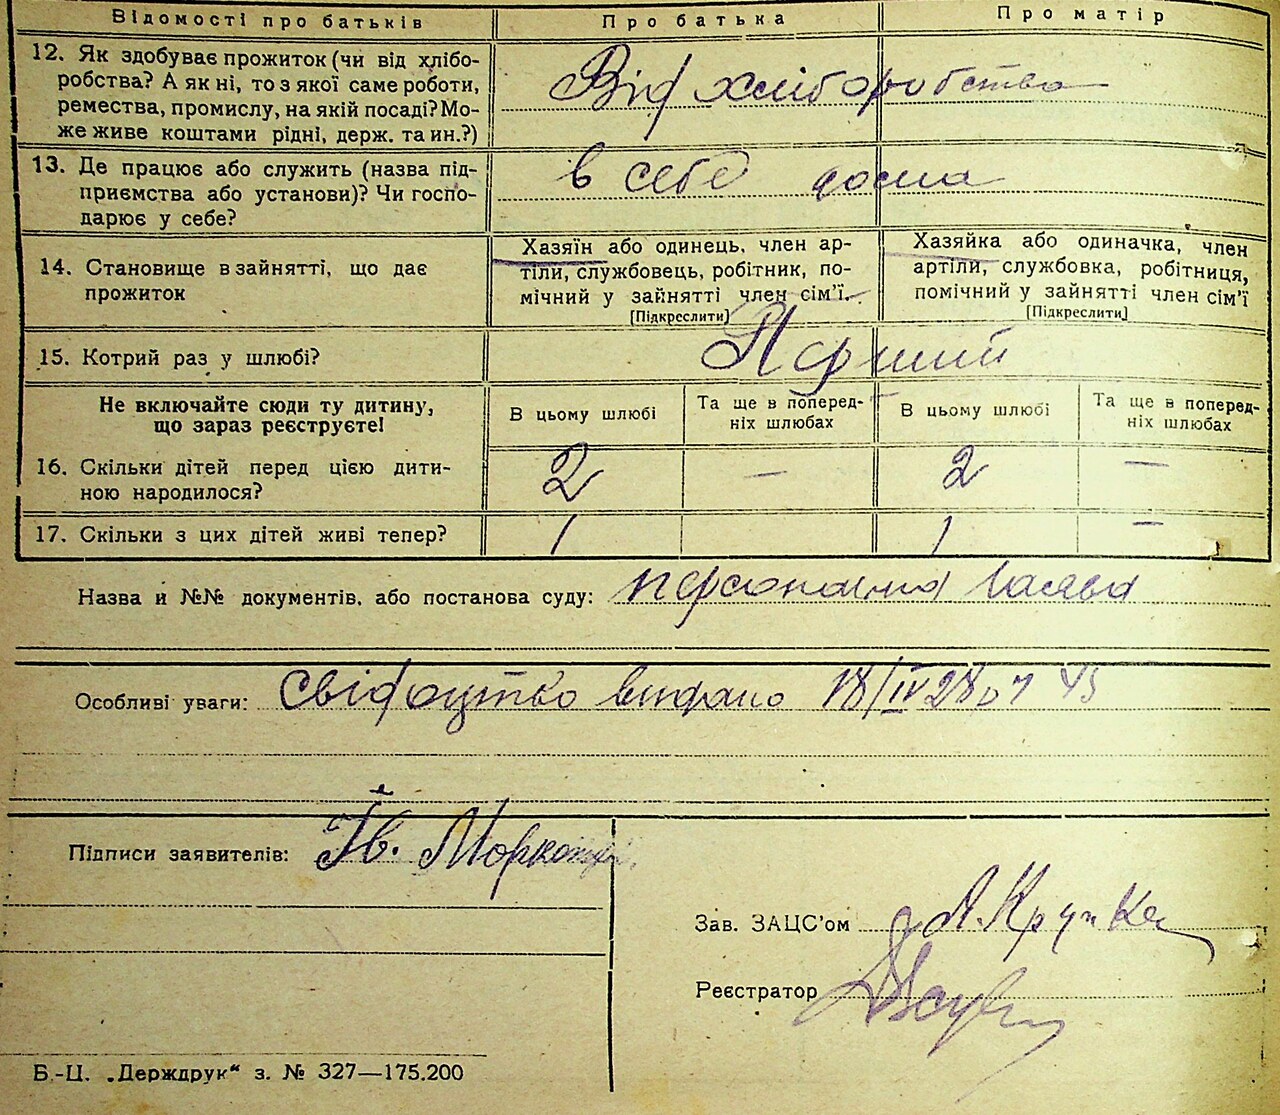 Відомості про батьків Про батька Про матір
12. Як здобуває прожиток (чи від хлібо-
робства? А як ні, то з якої саме роботи,
ремества, промислу, на якій посаді? Мо-
же живе коштами рідні, держ. та ин.?)
Від хліборобства
13. Де працює або служить (назва під-
приємства або установи)? Чи госпо-
дарює у себе?
в себе дома
14. Становище в зайнятті, що дає
прожиток
Хазяїн або одинець, член ар-
тіли, службовець, робітник, по-
мічний у зайнятті член сім'ї.
[Підкреслити]
Хазяйка або одиначка, член
артіли, службовка, робітниця,
помічний у зайнятті член сім'ї
[Підкреслити]
15. Котрий раз у шлюбі?
Перший
Не включайте сюди ту дитину,
що зараз реєструєте!
В цьому шлюбі
Та ще в поперед-
ніх шлюбах
В цьому шлюбі
Та ще в поперед-
ніх шлюбах
16. Скільки дітей перед цією дити-
ною народилося?
2 — 2 —
17. Скільки з цих дітей живі тепер?
1 1 —
Назва й №№ документів, або постанова суду: персональна заява
Особливі уваги: свідоцтво видано 18/IV 28 р. 45
Підписи заявителів: Ів.
Зав. ЗАЦС'ом А. Крупка
Реєстратор
Б.-Ц. „Держдрук" з. № 327—175.200